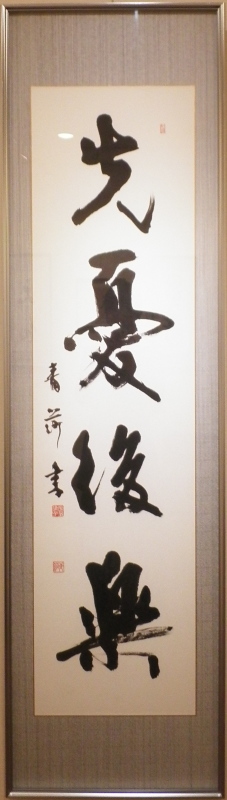 先憂後樂
青莎書